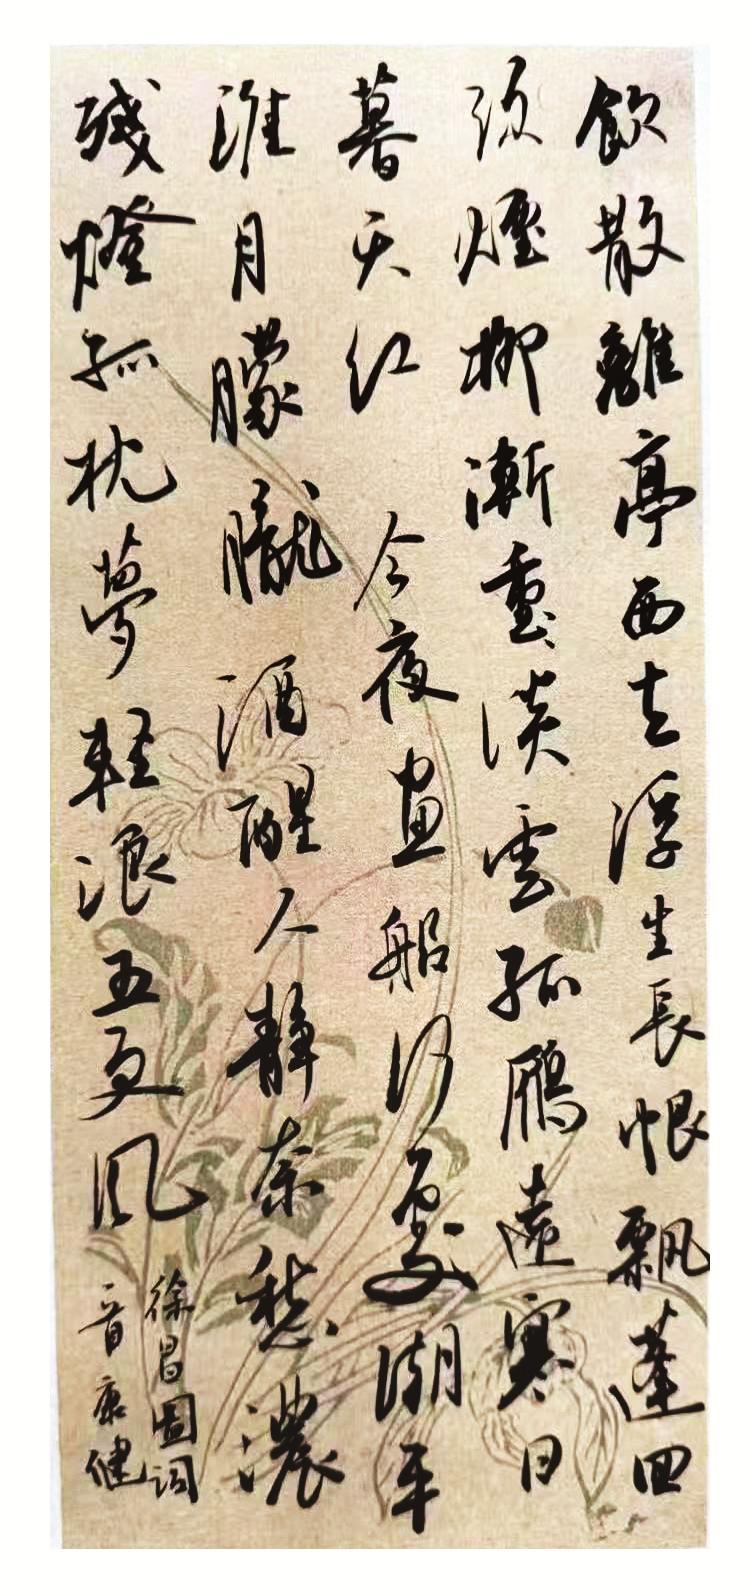 飲散離亭西去浮生長恨飄蓬回
頭煙柳漸重重淡雲孤鴈遠寒日
暮天紅 今夜画船何處潮平
淮月朦朧 酒醒人靜奈愁濃
殘燈孤枕夢輕浪五更風
徐昌圖詞
音康健